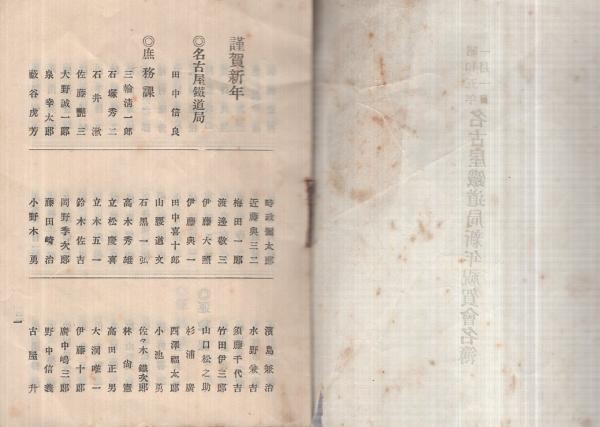 謹賀新年
◎名古屋鐵道局
田中信良
◎庶務課
三輪清一郎
石塚秀二
石井漱
佐藤艶三
大野誠一郎
泉幸太郎
藪谷虎芳
時政彌太郎
近藤與三二
梅田一郎
渡邊敬三
伊藤大照
伊藤與一
田中喜十郎
山腰道文
石黒一弘
高木秀雄
立松慶喜
立木五一
鈴木佐吉
岡野季次郎
藤田崎治
小野木一勇
濱島兼治
水野兼吉
須藤千代吉
竹田伊三郎
山口松之助
杉浦廣
西澤福太郎
小池勇
佐々木鐵次郎
林尚憲
高田正男
大洞唯一
伊藤十郎
廣中嶋三郎
野中信義
古屋升
一月一日
名古屋鐵道局新年祝賀會名簿